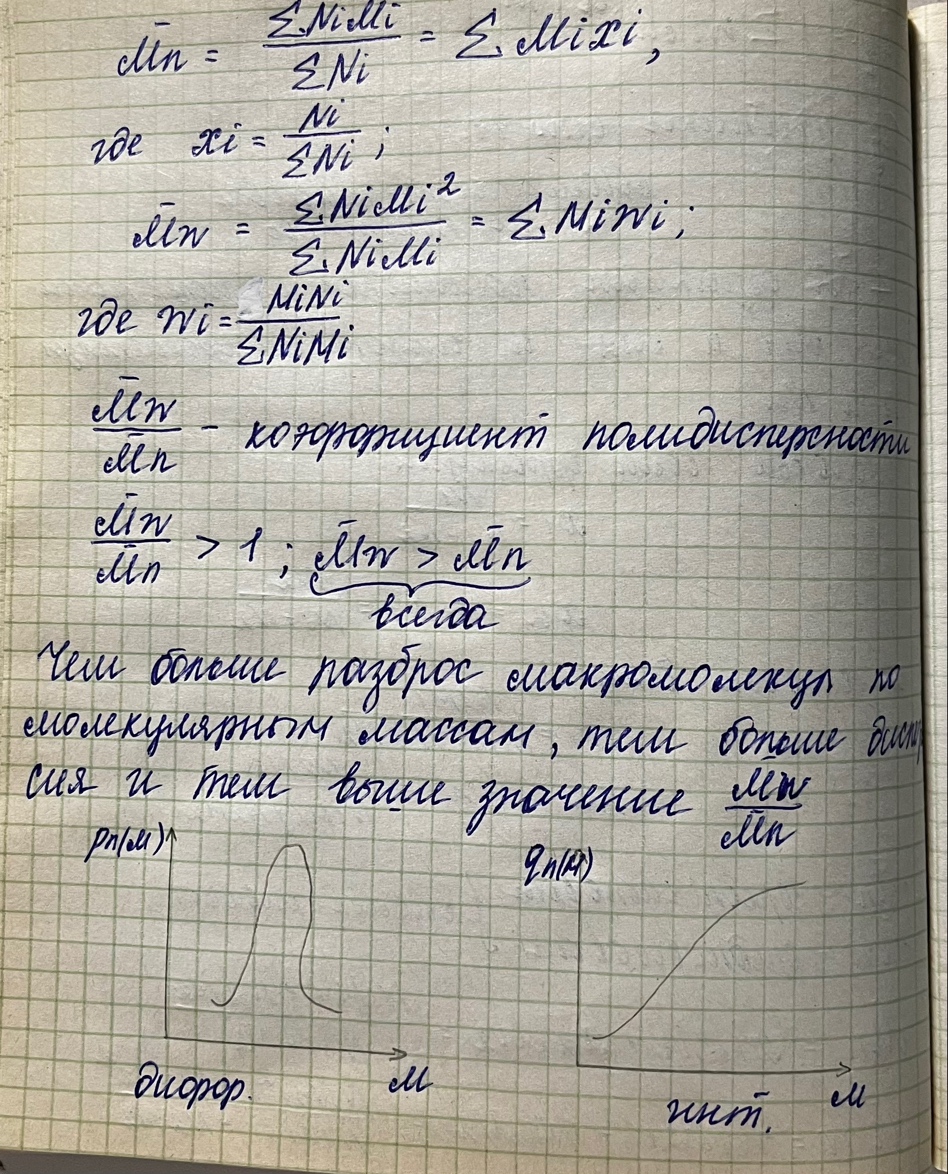 M̄n = ΣNiMi / ΣNi = ΣMixi,
где xi = Ni / ΣNi;
M̄w = ΣNiMi² / ΣNiMi = ΣMiwi;
где wi = MiNi / ΣNiMi
M̄w / M̄n - коэффициент полидисперсности
M̄w / M̄n > 1; M̄w > M̄n
всегда
Чем больше разброс макромолекул по
молекулярным массам, тем больше диспер
сия и тем выше значение M̄w / M̄n
Pn(M) qn(M)
M M
диффер. инт.